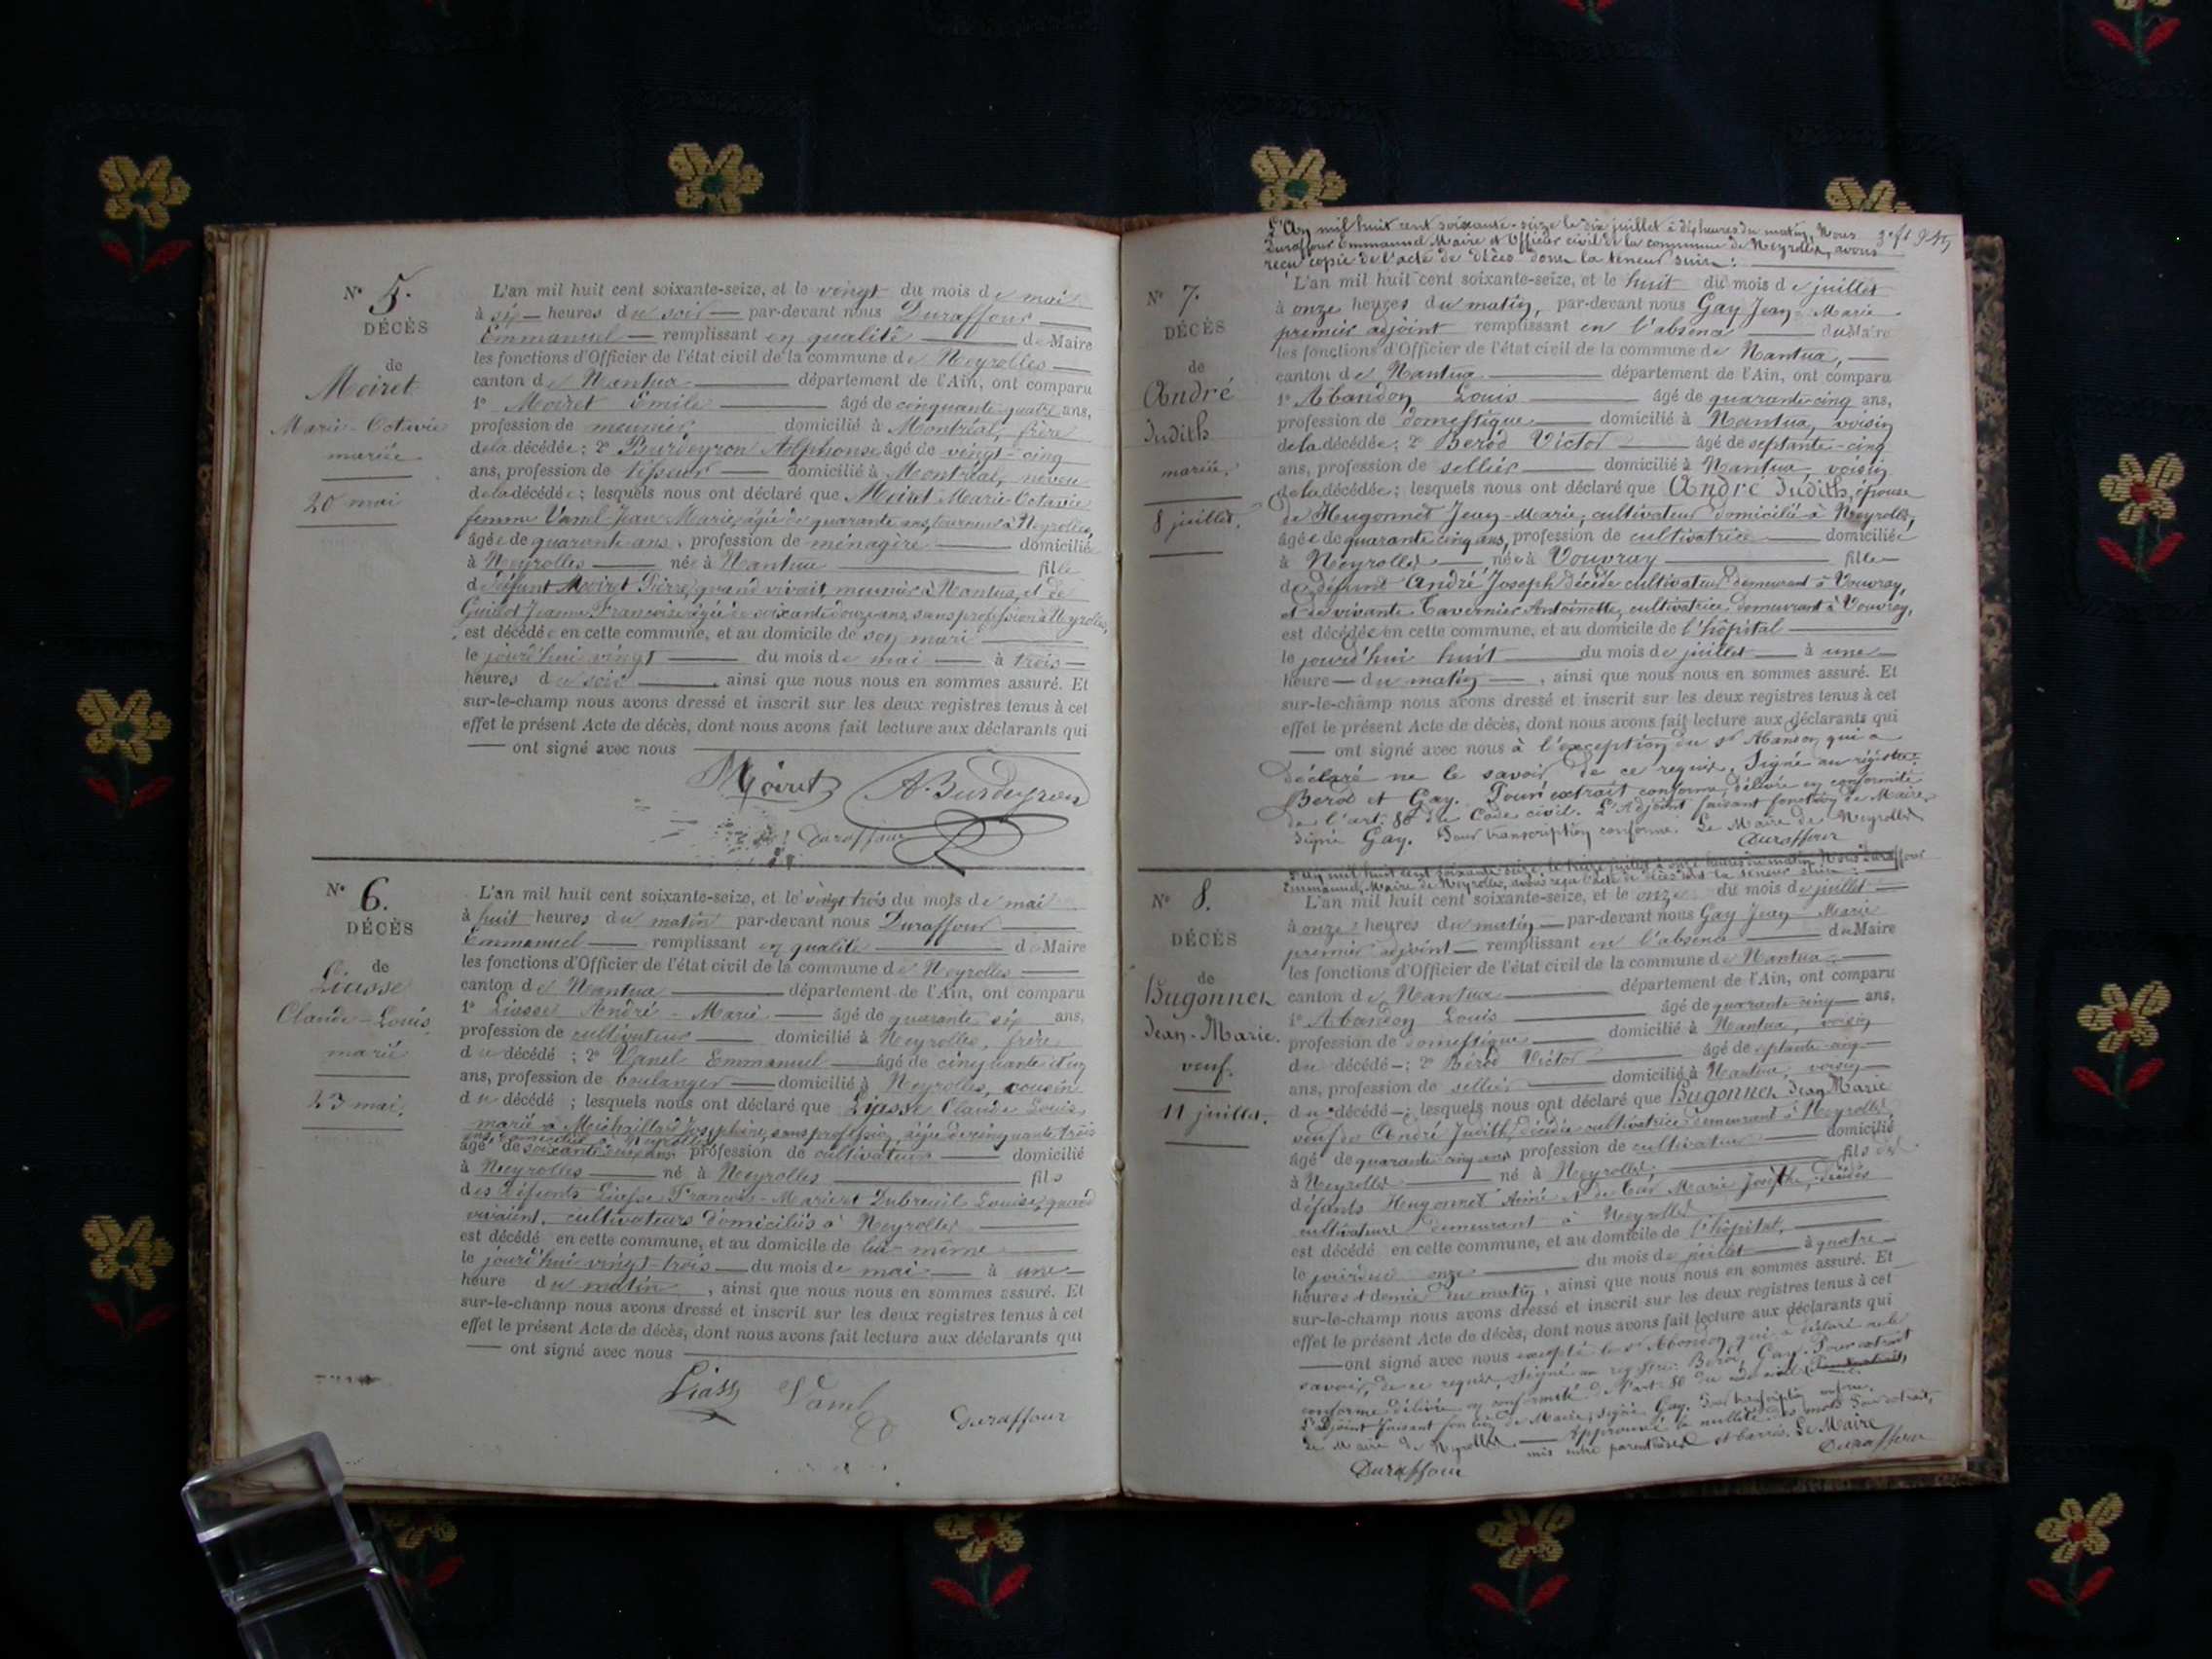 N° 5.
DÉCÈS
de
Moiret
Marie-Octavie
mariée
20 mai
L'an mil huit cent soixante-seize, et le vingt du mois de mai
à six heures du soir par-devant nous Duraffour
Emmanuel remplissant en qualité de Maire
les fonctions d'Officier de l'état civil de la commune de Neyrolles
canton de Nantua département de l'Ain, ont comparu
1° Moiret Emile âgé de cinquante quatre ans,
profession de meunier domicilié à Montréal, frère
de la décédée ; 2° Burdeyron Alphonse âgé de vingt-cinq
ans, profession de tisseur domicilié à Montréal, neveu
de la décédée ; lesquels nous ont déclaré que Moiret Marie Octavie
femme Vanel Jean Marie, âgé de quarante ans, tourneur à Neyrolles,
âgée de quarante ans, profession de ménagère domiciliée
à Neyrolles née à Nantua fille
de défunt Moiret Pierre, quand vivait meunier à Nantua, et de
Guidot Jeanne Françoise âgée de soixante douze ans, sans profession à Neyrolles,
est décédée en cette commune, et au domicile de son mari
le jourd'hui vingt du mois de mai à trois
heures du soir ainsi que nous nous en sommes assuré. Et
sur-le-champ nous avons dressé et inscrit sur les deux registres tenus à cet
effet le présent Acte de décès, dont nous avons fait lecture aux déclarants qui
ont signé avec nous
Moiret A. Burdeyron
Duraffour
N° 6.
DÉCÈS
de
Liasse
Claude-Louis
marié
23 mai.
L'an mil huit cent soixante-seize, et le vingt trois du mois de mai
à huit heures du matin par-devant nous Duraffour
Emmanuel remplissant en qualité de Maire
les fonctions d'Officier de l'état civil de la commune de Neyrolles
canton de Nantua département de l'Ain, ont comparu
1° Liasse André-Marie âgé de quarante six ans,
profession de cultivateur domicilié à Neyrolles, frère
du décédé ; 2° Vanel Emmanuel âgé de cinquante et un
ans, profession de boulanger domicilié à Neyrolles, cousin
du décédé ; lesquels nous ont déclaré que Liasse Claude Louis,
marié à Michaillard Josephine, sans profession, âgée de cinquante trois
ans domiciliée à Neyrolles
âgé de profession de cultivateur domicilié
à Neyrolles né à Neyrolles fils
des défunts Liasse François-Marie et Dubreuil Louise, quand
vivaient, cultivateurs domiciliés à Neyrolles
est décédé en cette commune, et au domicile de lui-même
le jourd'hui vingt-trois du mois de mai à une
heure du matin, ainsi que nous nous en sommes assuré. Et
sur-le-champ nous avons dressé et inscrit sur les deux registres tenus à cet
effet le présent Acte de décès, dont nous avons fait lecture aux déclarants qui
ont signé avec nous
Liass Vanel Duraffour
L'An mil huit cent soixante-seize le dix juillet à dix heures du matin, Nous
Duraffour Emmanuel Maire et Officier civil de la commune de Neyrolles, avons
reçu copie de l'acte de décès dont la teneur suit :
N° 7.
DÉCÈS
de
André
Judith
mariée.
8 juillet.
L'an mil huit cent soixante-seize, et le huit du mois de juillet
à onze heures du matin, par-devant nous Gay Jean-Marie
premier adjoint remplissant en l'absence du Maire
les fonctions d'Officier de l'état civil de la commune de Nantua,
canton de Nantua département de l'Ain, ont comparu
1° Abandon Louis âgé de quarante cinq ans,
profession de domestique domicilié à Nantua, voisin
de la décédée ; 2° Berod Victor âgé de septante-cinq
ans, profession de sellier domicilié à Nantua, voisin
de la décédée ; lesquels nous ont déclaré que André Judith, épouse
de Hugonnet Jean-Marie, cultivateur domicilié à Neyrolles,
âgée de quarante cinq ans, profession de cultivatrice domiciliée
à Neyrolles née à Vouvray fille
de défunt André Joseph décédé cultivateur demeurant à Vouvray,
et de vivante Tavernier Antoinette, cultivatrice, demeurant à Vouvray,
est décédée en cette commune, et au domicile de l'hôpital
le jourd'hui huit du mois de juillet à une
heure du matin, ainsi que nous nous en sommes assuré. Et
sur-le-champ nous avons dressé et inscrit sur les deux registres tenus à cet
effet le présent Acte de décès, dont nous avons fait lecture aux déclarants qui
ont signé avec nous à l'exception du sr Abandon qui a
déclaré ne le savoir de ce requis. Signé au régistre:
Berod et Gay. Pour extrait conforme, délivré en conformité
de l'art. 80 du Code civil. L'Adjoint faisant fonction de Maire,
Signé Gay. Pour transcription conforme. Le Maire de Neyrolles
Duraffour
L'an mil huit cent soixante seize, le treize juillet à onze heures du matin Nous Duraffour
Emmanuel, Maire de Neyrolles, avons reçu l'acte de décès dont la teneur suit :
N° 8.
DÉCÈS
de
Hugonnet
Jean-Marie.
veuf.
11 juillet.
L'an mil huit cent soixante-seize, et le onze du mois de juillet
à onze heures du matin par-devant nous Gay Jean-Marie
premier adjoint remplissant en l'absence du Maire
les fonctions d'Officier de l'état civil de la commune de Nantua
canton de Nantua département de l'Ain, ont comparu
1° Abandon Louis âgé de quarante-cinq ans,
profession de domestique domicilié à Nantua, voisin
du décédé ; 2° Bérod Victor âgé de septante-cinq
ans, profession de sellier domicilié à Nantua, voisin
du décédé ; lesquels nous ont déclaré que Hugonnet Jean Marie
veuf de André Judith, décédée cultivatrice demeurant à Neyrolles
âgé de quarante cinq ans profession de cultivateur domicilié
à Neyrolles né à Neyrolles, fils de
défunts Hugonnet Aimé et de Marie Josephe, décédés
cultivateurs demeurant à Neyrolles
est décédé en cette commune, et au domicile de l'hôpital,
le onze du mois de juillet à quatre
heures et demie du matin, ainsi que nous nous en sommes assuré. Et
sur-le-champ nous avons dressé et inscrit sur les deux registres tenus à cet
effet le présent Acte de décès, dont nous avons fait lecture aux déclarants qui
ont signé avec nous excepté le sr Abandon qui a déclaré ne le
savoir, de ce requis, signé au registre: Berod, Gay. Pour extrait
conforme délivré en conformité de l'art. 80 du code civil (Pour extrait,
L'Adjoint faisant fonction de Maire, signé Gay. Pour transcription conforme.
Le Maire de Neyrolles Approuvé la nullité des mots Pour extrait,
mis entre parenthèses et barrés. Le Maire
Duraffour Duraffour